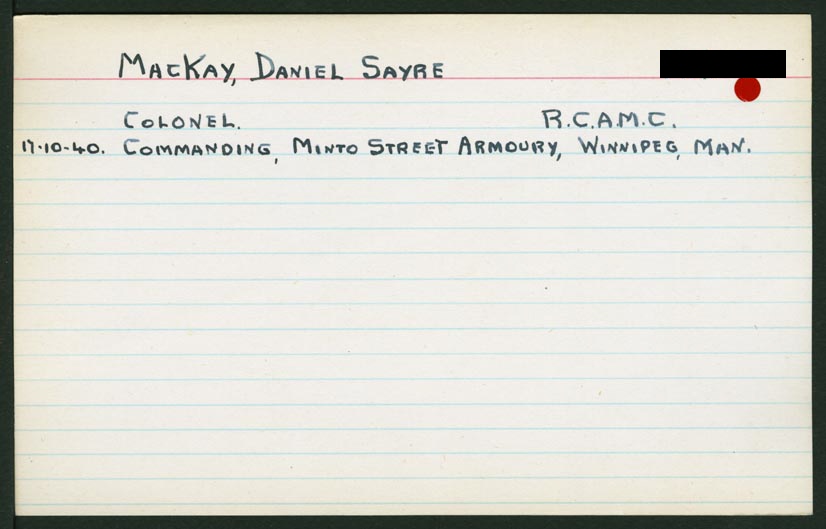 MacKay, Daniel Sayre
Colonel. R.C.A.M.C.
17-10-40. Commanding, Minto Street Armoury, Winnipeg, Man.